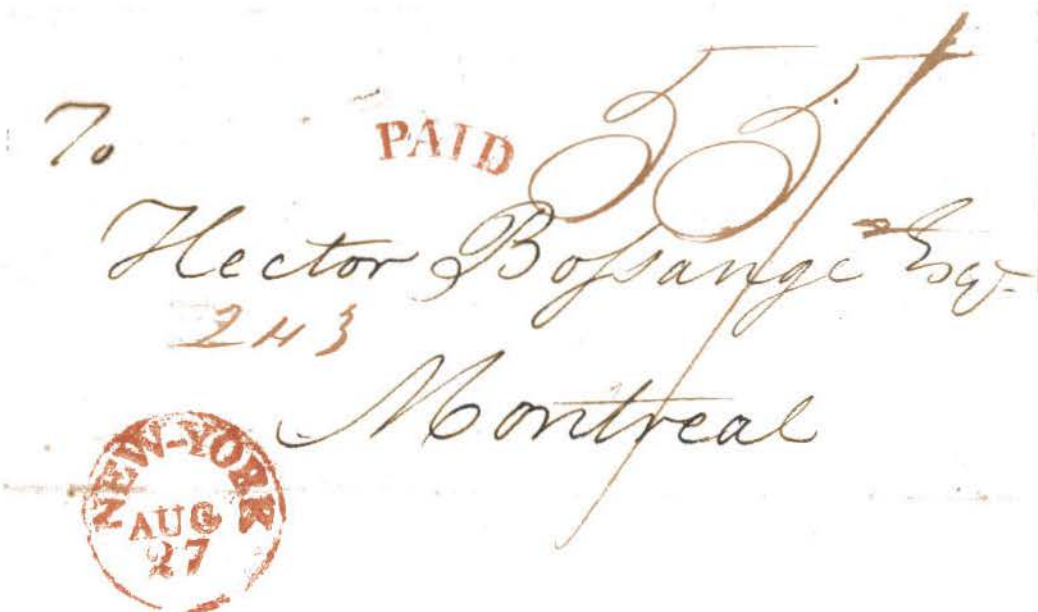 To
PAID
55
Hector Boſsange Esqr
243
Montreal
NEW-YORK
AUG
27